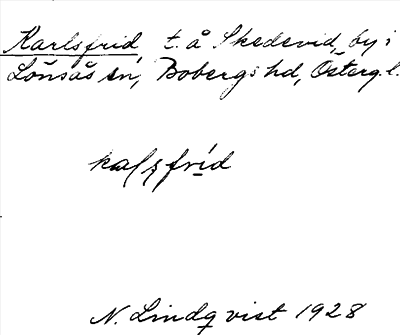 Karlsfrid, t. å Skedevid, by i
Lönsås sn, Bobergs hd, Österg. l.
N. Lindqvist 1928